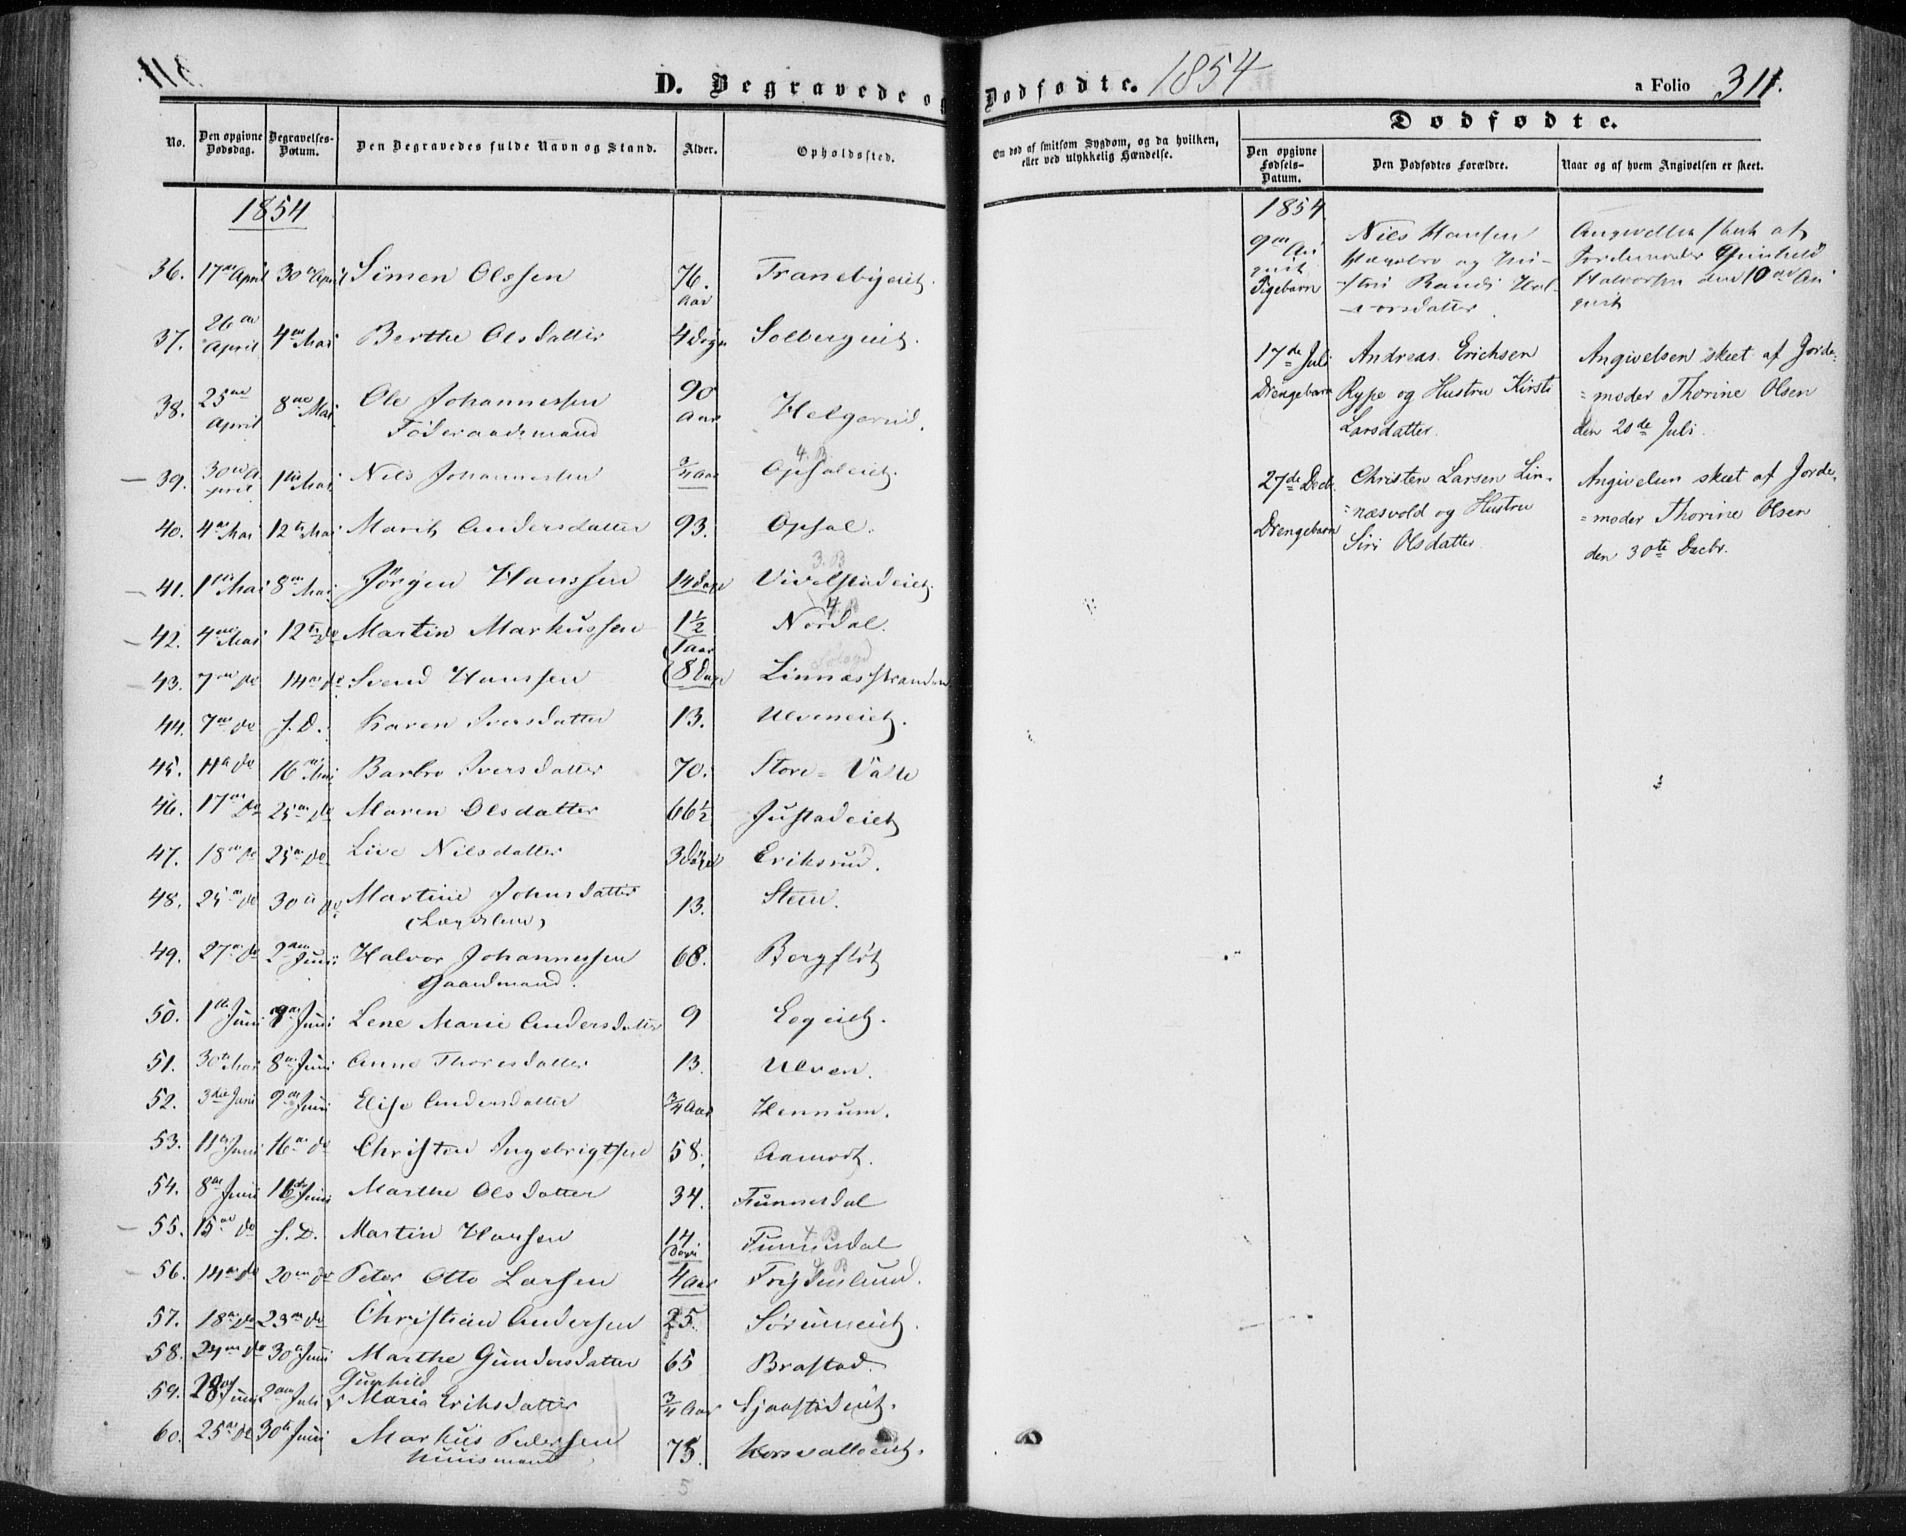 D. Begravede og Dødfødte. 1854
a Folio 311.
No. Den opgivne Dødsdag. Begravelses-Datum. Den Begravedes fulde Navn og Stand. Alder. Opholdssted.
1854
36. 17de April 30te April Simen Olssen 76. Aar Tranebyeiet.
37. 26de April 4de Mai Berthe Olsdatter 4 Dage Solbergeiet.
38. 25de April 8de Mai Ole Johannessen 90 Aar Helgerud.
Föderaadsmand
39. 30te April 1ste Mai Nils Johannessen 3/4 Aar Opsaleiet. 4. B.
40. 4de Mai 12te Mai Marit Andersdatter 93. Opsal.
41. 1ste Mai 8de Mai Jörgen Hanssen 14 Dage Vivelstadeiet. 3. B
42. 4de Mai 12te do Martin Markussen 1 1/2 Aar Nordal. 4. B
43. 7de do 14de do Svend Hanssen 8 Dage Linnæsstranden
44. 7de do s. D. Karen Iversdatter 13. Ulveneiet.
45. 11te do 16de Mai Barbro Iversdatter 70. Store-Valle
46. 17de do 25de do Maren Olsdatter 66 1/2 Justadeiet
47. 18de do 25de do Live Nilsdatter 3 Dage Eriksrud.
48. 25de do 30te do Martine Johnsdatter 13. Steen.
(Lægdslem)
49. 27de do 2den Juni Halvor Johannessen 68. Bergflöt
Gaardmand.
50. 1ste Juni 9de Juni Lene Marie Andersdatter 9 Eegeiet.
51. 30te Mai 8de Juni Anne Thoresdatter 13. Ulven.
52. 3die Juni 9de Juni Elise Andersdatter 3/4 Aar Hennum.
53. 11te Juni 16de do Christen Ingebrigtsen 58. Aamodt.
54. 8de Juni 16de Juni Marthe Olsdatter 34. Funnesdal
55. 15de do s. D. Martin Hansen 14 Dage Funnesdal 4 B
56. 14de do 20de do Peter Otto Larsen 4 Aar Frydenlund. 4 B
57. 18de do 23de do Christian Andersen 25. Sörumeiet.
58. 24de do 30te Juni Marthe Gundersdatter 65 Brastad.
59. 28de Juni 2den Juli Gunhild Maria Eriksdatter 3/4 Aar Gjaastadeiet.
60. 25de do 30te Juni Markus Pedersen 75. Korsvalleiet.
Huusmand
5
Om død af smitsom Sygdom, og da hvilken, eller ved ulykkelig Hændelse.
Dødfødte.
Den opgivne Fødsels-Datum. Den Dødfødtes Forældre. Naar og af hvem Angivelsen er skeet.
1854
9de August Pigebarn
Nils Hansen
og Hustru Randi Halvorsdatter.
Angivelsen skeet af
Jordemoder Gunhild
Halvorsen den 10de August
17de Juli Drengebarn
Andreas Erichsen
Rype og Hustru Kirsti
Larsdatter.
Angivelsen skeet af Jorde-
=moder Thorine Olsen
den 20de Juli.
27de Decbr. Drengebarn
Christen Larsen Lin-
=næsvold og Hustru
Siri Olsdatter.
Angivelsen skeet af Jorde-
=moder Thorine Olsen
den 30te Decbr.